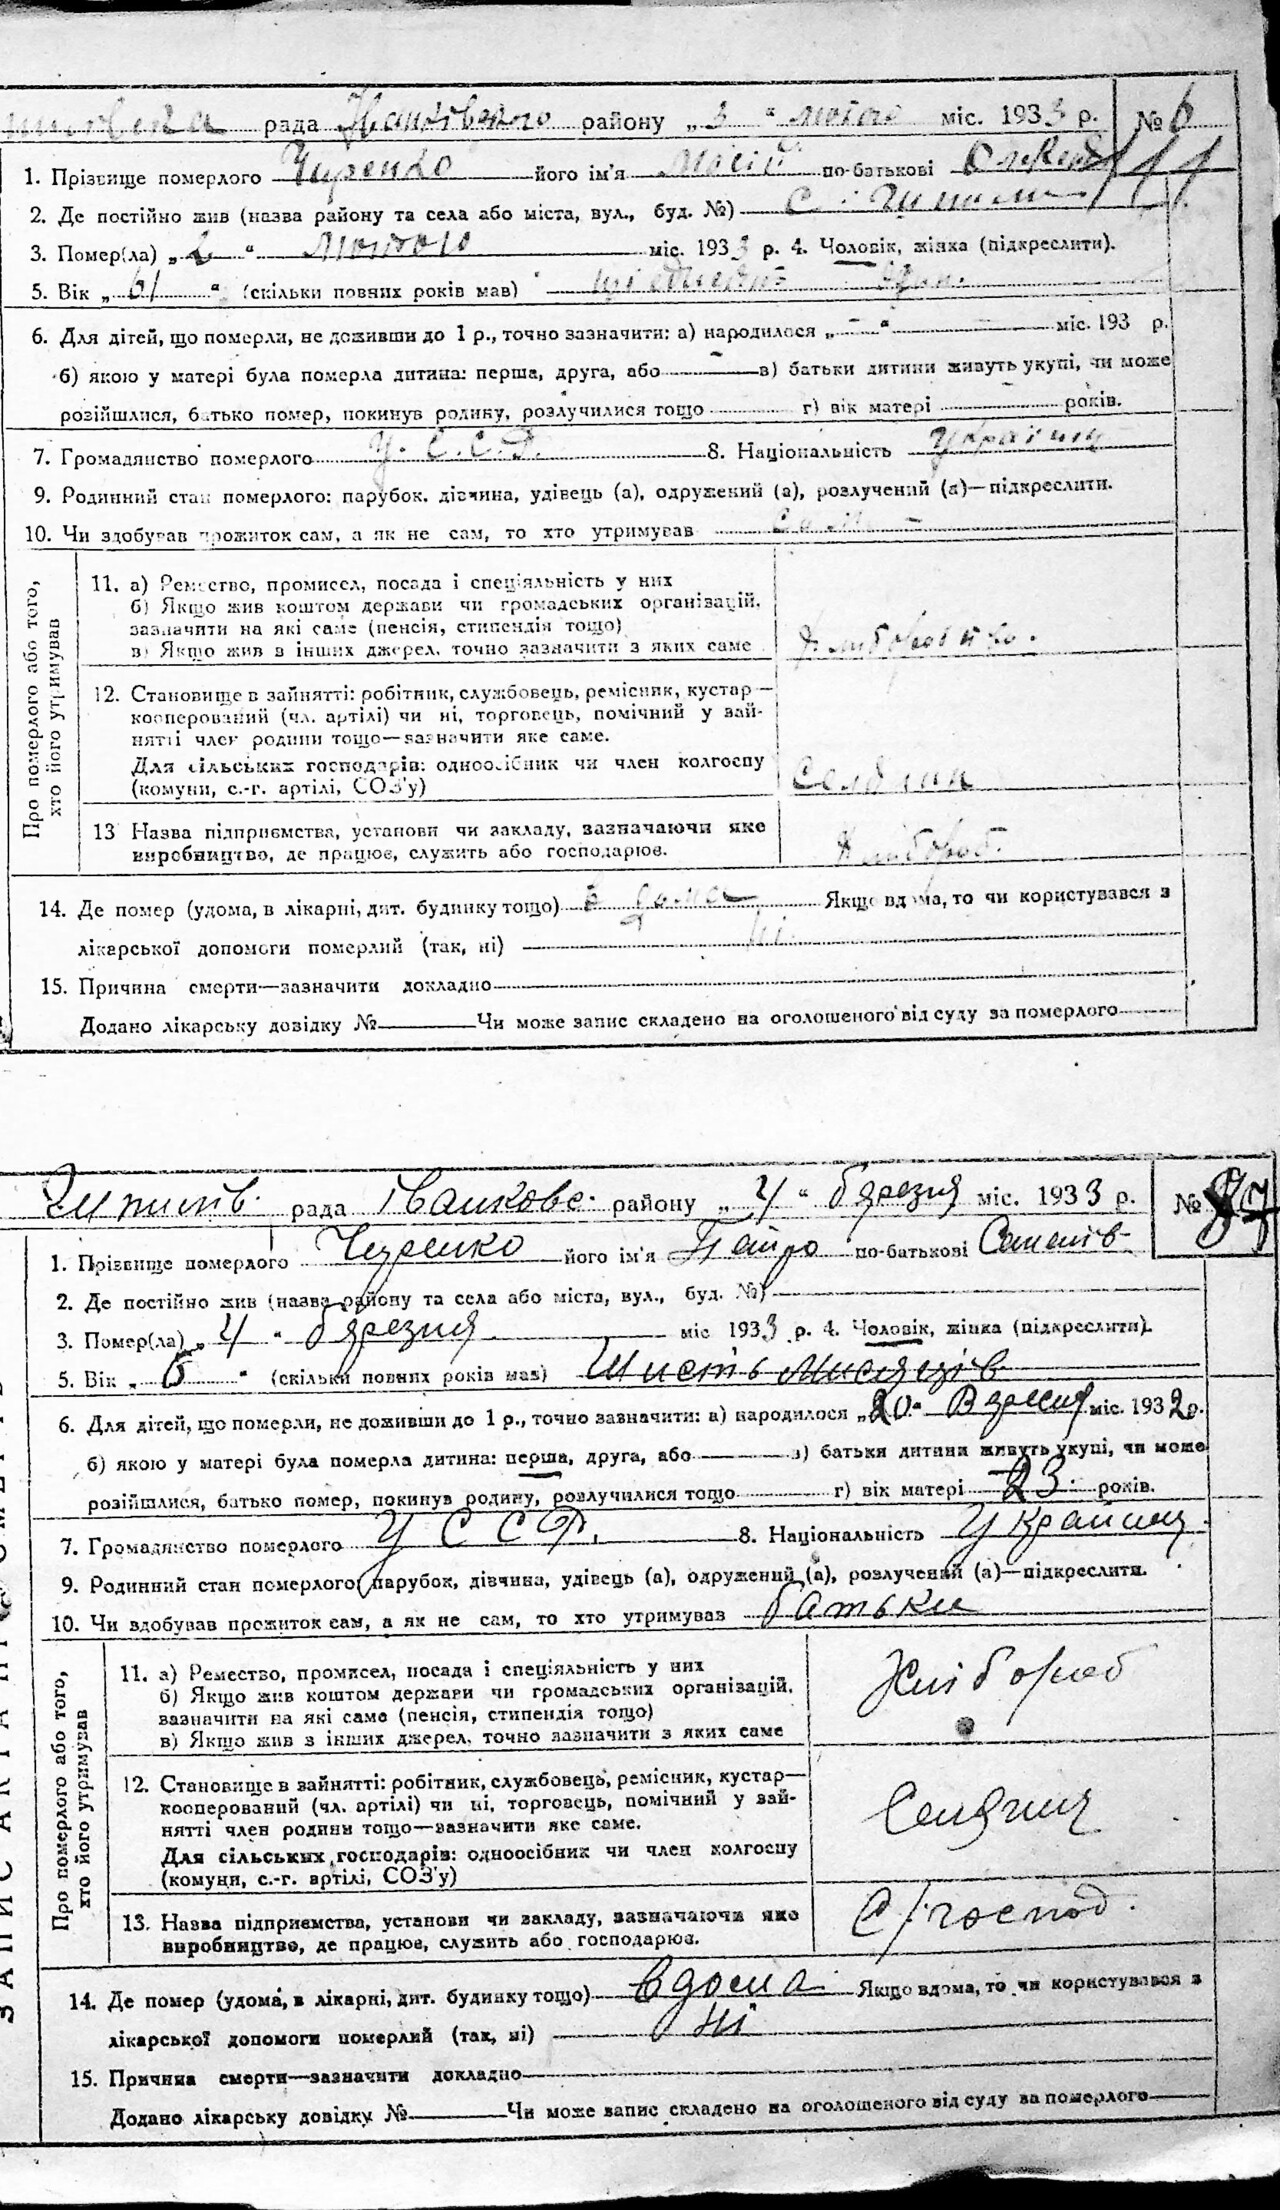 рада Іванківського району „3“ лютого міс. 1933 р. № 6
1. Прізвище померлого Чуренко його ім'я Мосій по-батькові
2. Де постійно жив (назва району та села або міста, вул., буд. №) с.
3. Помер(ла) „2“ лютого міс. 1933 р. 4. Чоловік, жінка (підкреслити).
5. Вік „61“ (скільки повних років мав) шісдисять один.
6. Для дітей, що померли, не доживши до 1 р., точно зазначити: а) народилося „—“ міс. 193 р.
б) якою у матері була померла дитина: перша, друга, або — в) батьки дитини живуть укупі, чи може
розійшлися, батько помер, покинув родину, розлучилися тощо г) вік матері років.
7. Громадянство померлого У.С.С.Р. 8. Національність Украінц
9. Родинний стан померлого: парубок, дівчина, удівець (а), одружений (а), розлучений (а)—підкреслити.
10. Чи здобував прожиток сам, а як не сам, то хто утримував сам –
Про померлого або того,
хто його утримував
11. а) Ремество, промисел, посада і спеціяльність у них
б) Якщо жив коштом держави чи громадських організацій,
зазначити на які саме (пенсія, стипендія тощо)
в) Якщо жив з інших джерел, точно зазначити з яких саме
12. Становище в зайнятті: робітник, службовець, ремісник, кустар—
кооперований (чл. артілі) чи ні, торговець, помічний у зай-
нятті член родини тощо—зазначити яке саме.
Для сільських господарів: одноосібник чи член колгоспу
(комуни, с.-г. артілі, СОЗ'у)
Селянин
13 Назва підприємства, установи чи закладу, зазначаючи яке
виробництво, де працює, служить або господарює.
Хлібороб.
14. Де помер (удома, в лікарні, дит. будинку тощо) в дома Якщо вдома, то чи користувався з
лікарської допомоги померлий (так, ні) ні
15. Причина смерти—зазначити докладно
Додано лікарську довідку № Чи може запис складено на оголошеного від суду за померлого
Шпилів. рада Іванковс. району „4“ березня міс. 1933 р. №
1. Прізвище померлого Чуренко його ім'я Петро по-батькові Семенів
2. Де постійно жив (назва району та села або міста, вул., буд. №)
3. Помер(ла) „4“ березня міс 1933 р. 4. Чоловік, жінка (підкреслити).
5. Вік „6“ (скільки повних років мав) Шисть мисяців
6. Для дітей, що померли, не доживши до 1 р., точно зазначити: а) народилося „20“ Вересня міс. 1932 р.
б) якою у матері була померла дитина: перша, друга, або в) батьки дитини живуть укупі, чи може
розійшлися, батько помер, покинув родину, розлучилися тощо г) вік матері 23 років.
7. Громадянство померлого У С С Р. 8. Національність Украинц.
9. Родинний стан померлого: парубок, дівчина, удівець (а), одружений (а), розлучений (а)—підкреслити.
10. Чи здобував прожиток сам, а як не сам, то хто утримував батьки
ЗАПИС АКТА ПРО СМЕРТЬ
Про померлого або того,
хто його утримував
11. а) Ремество, промисел, посада і спеціяльність у них
б) Якщо жив коштом держави чи громадських організацій,
зазначити на які саме (пенсія, стипендія тощо)
в) Якщо жив з інших джерел, точно зазначити з яких саме
Хлібороб
12. Становище в зайнятті: робітник, службовець, ремісник, кустар—
кооперований (чл. артілі) чи ні, торговець, помічний у зай-
нятті член родини тощо—зазначити яке саме.
Для сільських господарів: одноосібник чи член колгоспу
(комуни, с.-г. артілі, СОЗ'у)
Селянин
13. Назва підприємства, установи чи закладу, зазначаючи яке
виробництво, де працює, служить або господарює.
С/господ.
14. Де помер (удома, в лікарні, дит. будинку тощо) вдома Якщо вдома, то чи користувався з
лікарської допомоги померлий (так, ні) ні
15. Причина смерти—зазначити докладно
Додано лікарську довідку № Чи може запис складено на оголошеного від суду за померлого